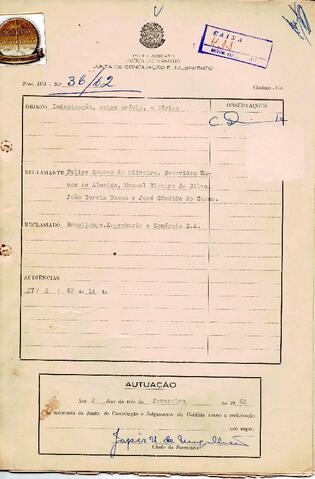 PODER JUDICIÁRIO
JUSTIÇA DO TRABALHO
JUNTA DE CONCILIAÇÃO E JULGAMENTO
CAIXA
Proc. JCJ - N.º 36/62
Goiânia - Go.
OBJETO Indenização, aviso prévio, e férias
OBSERVAÇÕES
RECLAMANTE Felipe Soares de Oliveira, Benevides Ra-
mos de Almeida, Manoel Ribeiro da Silva,
João Garcia Ramos e José Cândido do Carmo.
RECLAMADO Engenharia e Comércio S.A.
AUDIÊNCIAS
27/ 2 / 62 às 14 hs
AUTUAÇÃO
Aos 2 dias do mês de fevereiro de 1962
na Secretaria da Junta de Conciliação e Julgamento de Goiânia autuo a reclamação
que segue.
Chefe da Secretaria